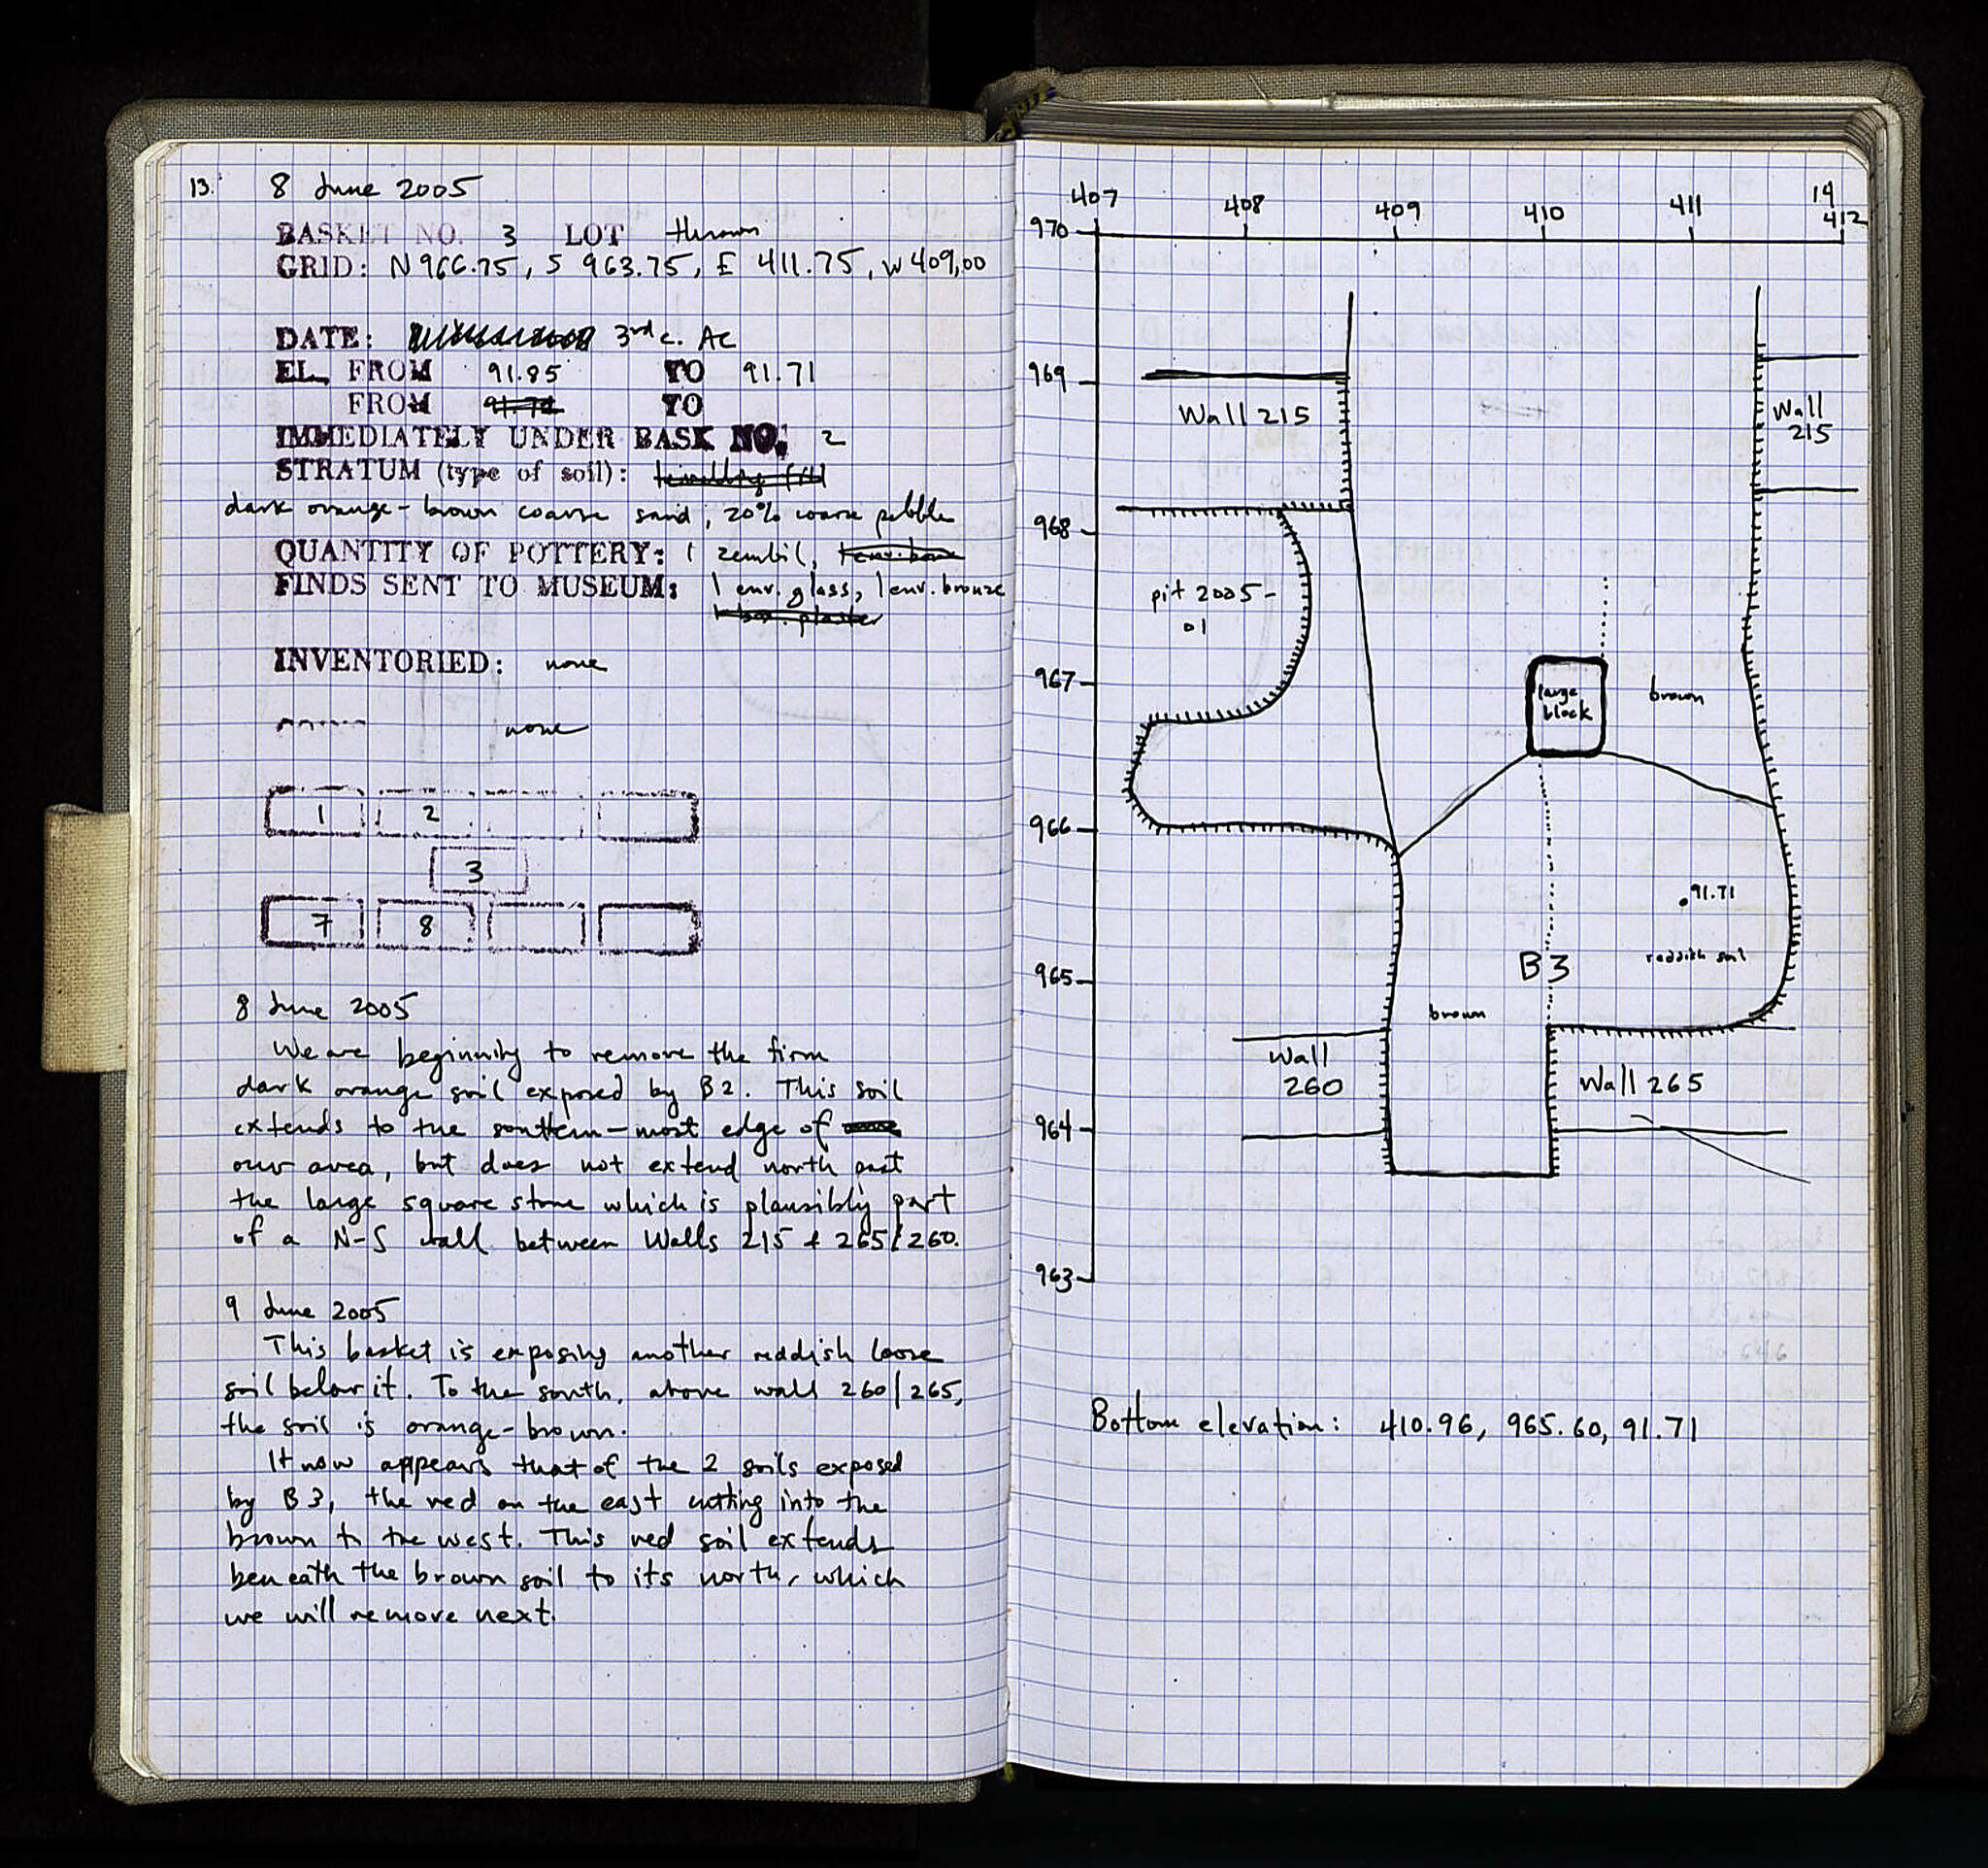 13.
8 June 2005
BASKET NO. 3 LOT thrown
GRID: N 966.75, S 963.75, E 411.75, W 409.00
DATE: 3rd c. AC
EL. FROM 91.85 TO 91.71
FROM 91.72 TO
IMMEDIATELY UNDER BASK NO. 2
STRATUM (type of soil):
dark orange-brown coarse sand, 20% coarse pebble
QUANTITY OF POTTERY: 1 zembil, 1 env. bone
FINDS SENT TO MUSEUM: 1 env. glass, 1 env. bronze
1 box plaster
INVENTORIED: none
none
1 2
3
7 8
8 June 2005
We are beginning to remove the firm
dark orange soil exposed by B2. This soil
extends to the southern-most edge of
our area, but does not extend north past
the large square stone which is plausibly part
of a N-S wall between Walls 215 + 265/260.
9 June 2005
This basket is exposing another reddish loose
soil below it. To the south, above wall 260/265,
the soil is orange-brown.
It now appears that of the 2 soils exposed
by B3, the red on the east cutting into the
brown to the west. This red soil extends
beneath the brown soil to its north, which
we will remove next.
14
407 408 409 410 411 412
970
969
Wall 215
Wall
215
968
pit 2005-
01
967
large
block
brown
966
91.71
965
B3
reddish soil
brown
Wall
260
Wall 265
964
963
Bottom elevation: 410.96, 965.60, 91.71